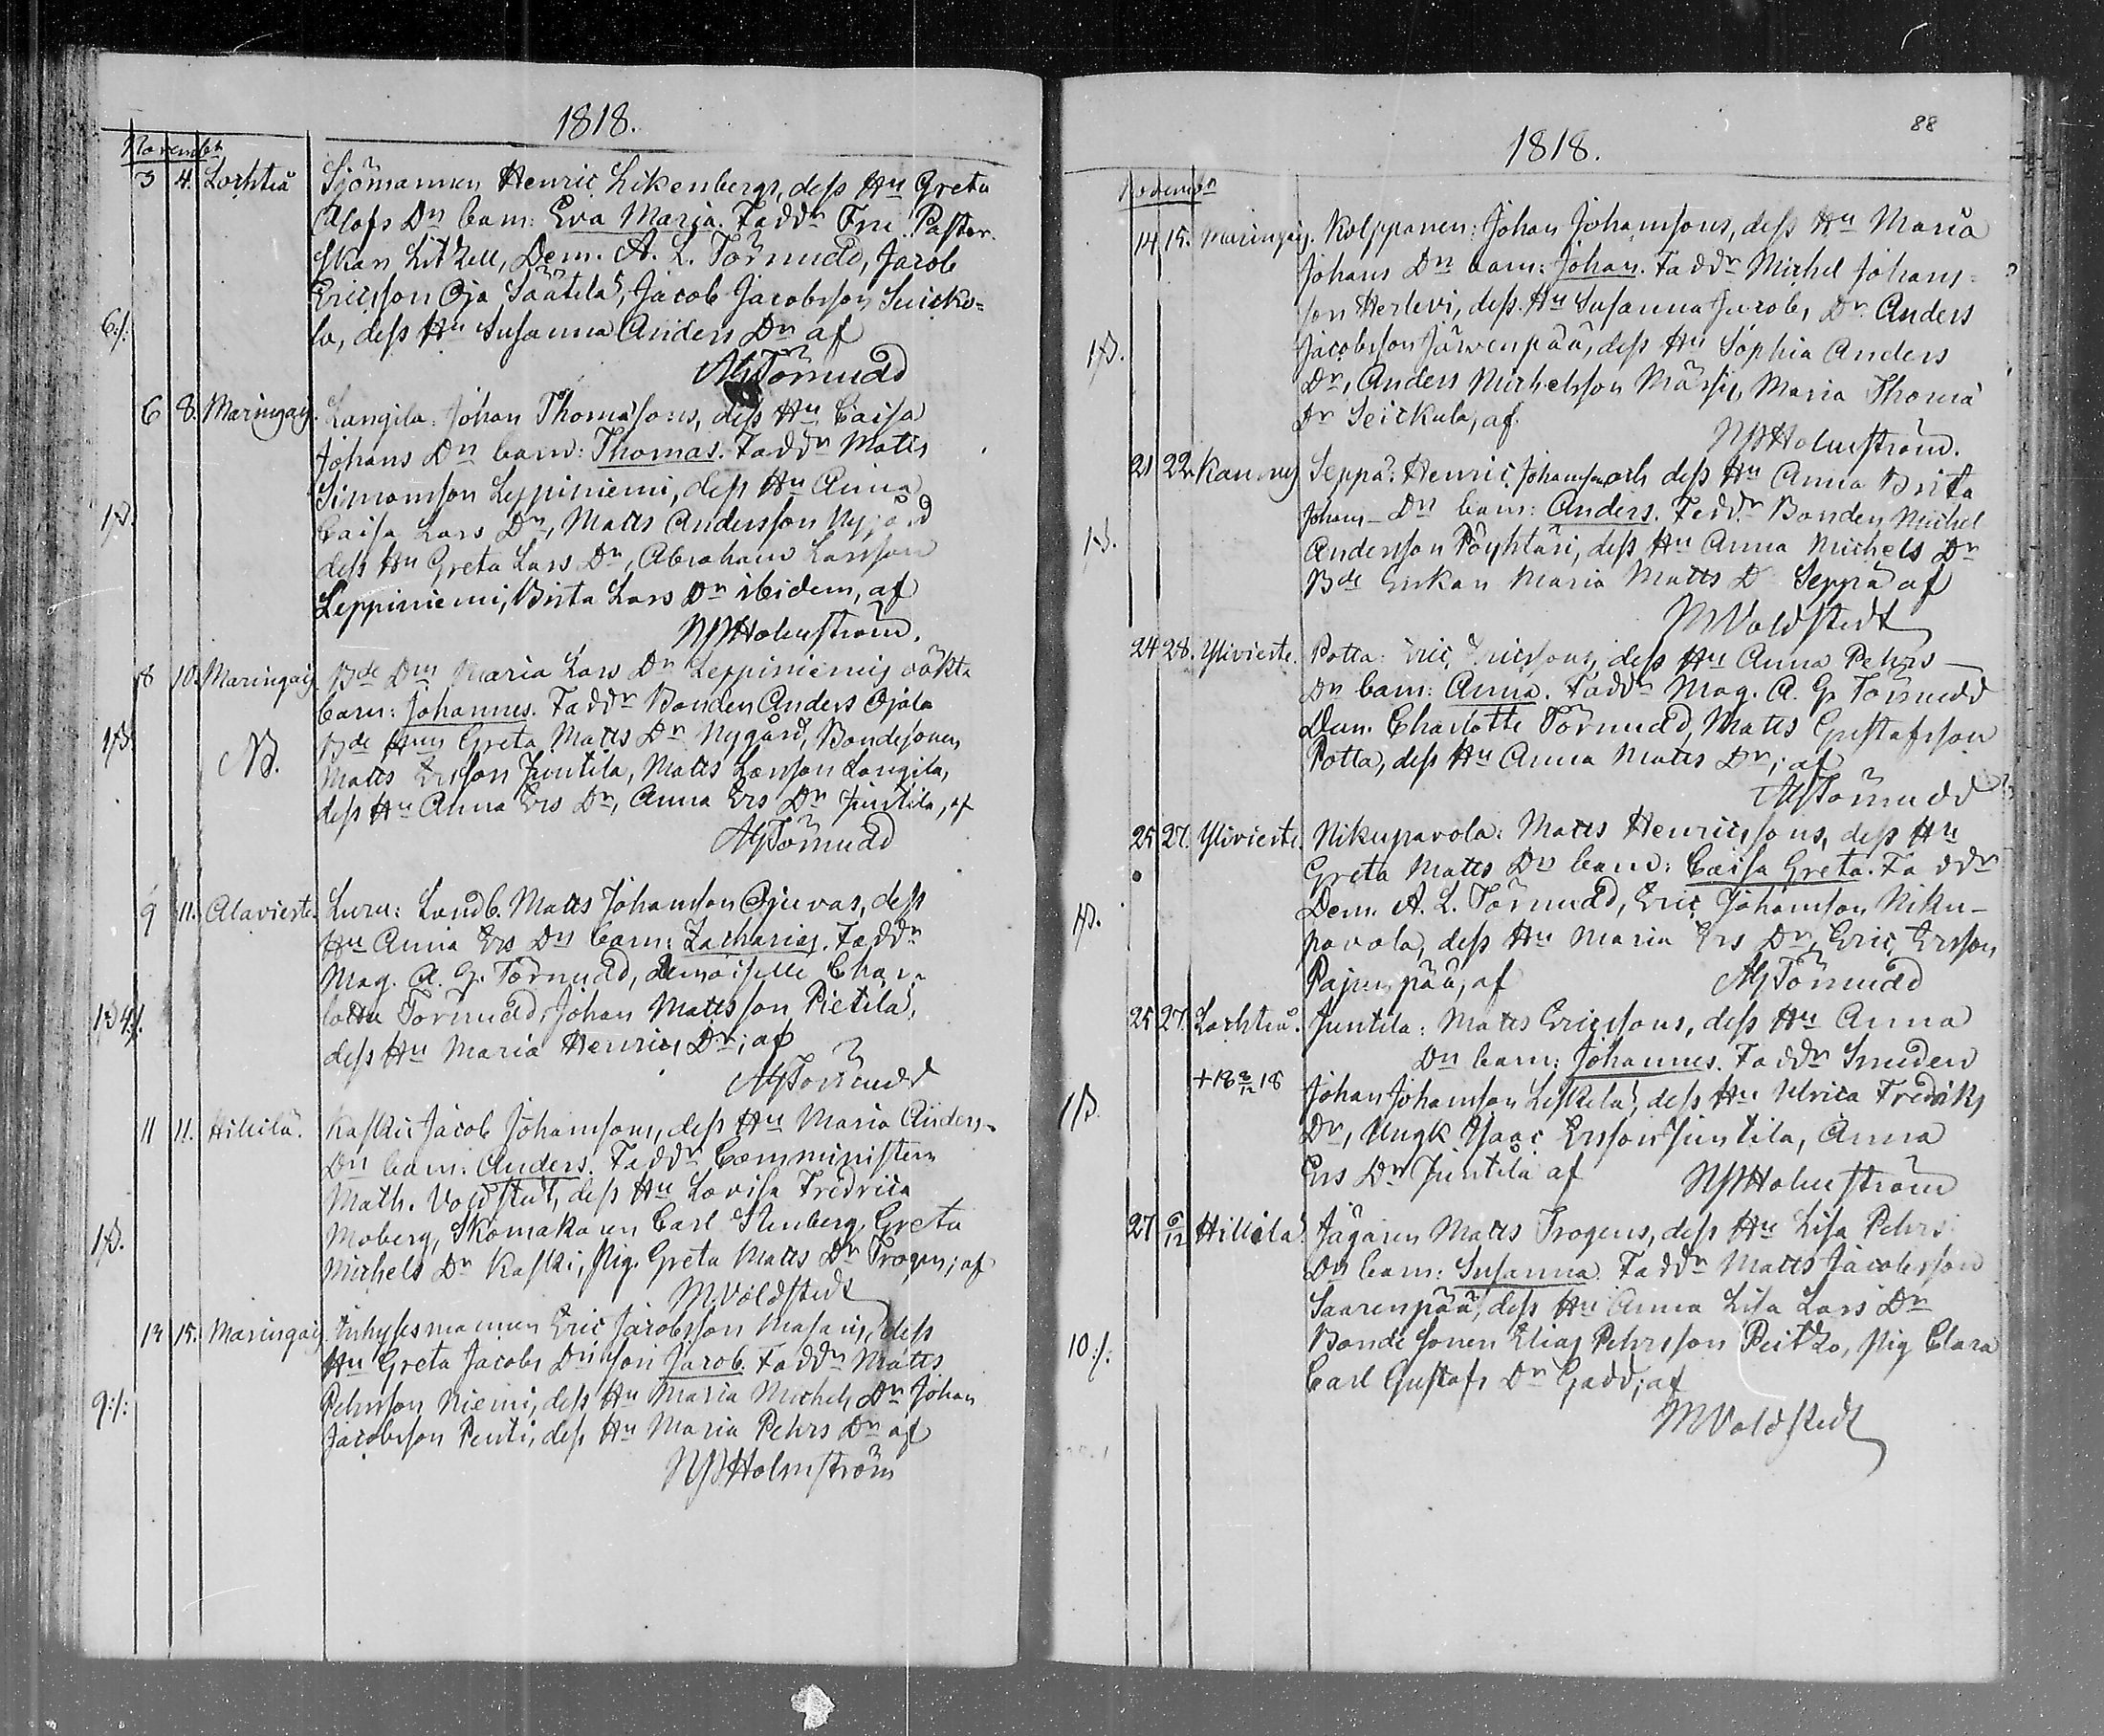 1818.
November
3 4. Lochteå Sjömannen Henric Likenbergs, dess Hu Greta
Olofs Dr barn: Eva Maria. Faddr Fru Pastor-
skan Litzell, Dem. A. L. Törnudd, Jacob
Ericsson Oja Säätelä, Jacob Jacobsson Seicku-
la, dess Hu Susanna Anders Dr af
6:/:
AGTörnudd
6 8. Maringais. Langila: Johan Thomæsons, dess Hu Caisa
Johans Dr barn: Thomas. Faddr Matts
Simonsson Leppiniemi, dess Hu Anna
1β. Caisa Lars Dr, Matts Andersson Nygård
dess Hu Greta Lars Dr, Abraham Larsson
Leppiniemi, Brita Lars Dr ibidem, af
Holmström.
8 10. Maringais Bde Dns Maria Lars Dr Leppiniemis oäkta
barn: Johannes. Faddr Bonden Anders Ojala
1β. NB. Bde Hun Greta Matts Dr Nygård, Bondesonen
Matts Ersson Juntila, Matts Larsson Langila,
dess Hu Anna Ers Dr, Anna Ers Dr Juntila, af
AGTörnudd
9 11. Alavieste. Luru: Landb. Matts Johansson Ojuvas, dess
Hu Anna Ers Dr barn: Zacharias. Faddr
Mag. A. G. Törnudd, demoiselle Char-
lotta Törnudd, Johan Mattsson Pietilä,
dess Hu Maria Henrics Dr; af
AGTörnudd
11 11. Hillilä. Kaski: Jacob Johansons, dess Hu Maria Anders-
Dr barn: Anders. Faddr Comministern
Math. Voldstedt, dess Hu Lovisa Fredrica
Moberg, Skomakaren Carl Stenberg, Greta
1β. Michels Dr Kaski, Pig. Greta Matts Dr Trogen; af
MVoldstedt
15. Maringais Inhysesmannen Eric Jacobsson Masanis, dess
Hu Greta Jacobs Dr son Jacob. Faddr Matts
9:/: Pehrsson Niemi, dess Hu Maria Michels Dr Johan
Jacobsson Penti, dess Hu Maria Pehrs Dr af
Holmström
88
1818.
November
14 15. Maringais. Kolppanen: Johan Johanssons, dess Hu Maria
Johans Dr barn: Johan. Faddr Michel Johans-
son Herlevi, dess Hu Susanna Jacobs Dr. Anders
1β. Jacobsson Järvenpää, dess Hu Sophia Anders
Dr, Anders Michelsson Märsy, Maria Thomæ
Dr Seickula, af.
Holmström.
21 22. Kannus Seppä: Henric Johansson och dess Hu Anna Brita
Johans- Dr barn: Anders. Faddr Bonden Michel
1β. Andersson Pöyhtäri, dess Hu Anna Michels Dr
Bde Enkan Maria Matts Dr Seppä af
MVoldstedt
24 28. Ylivieste. Potta: Eric Ericssons, dess Hu Anna Pehrs-
Dr barn: Anna. Faddr Mag. A. G. Törnudd
Dem. Charlotte Törnudd, Matts Gustafsson
Potta, dess Hu Anna Matts Dr; af
AGTörnudd
25 27. Ylivieste. Nikupavola: Matts Henricssons, dess Hu
Greta Matts Dr barn: Caisa Greta. Faddr
1β. Dem. A. L. Törnudd, Eric Johansson Niku-
pavola, dess Hu Maria Ers Dr, Eric Ersson,
Pajunpää, af AGTörnudd
25 27. Lochteå. Juntila: Matts Ericssons, dess Hu Anna
Dr barn: Johannes. Faddr Smeden
+18 8/12 18 Johan Johansson Leskelä, dess Hu Ulrica Fredriks
1β. Dr, Ungk Isaac Ersson Juntila, Anna
Ers Dr Juntila af Holmström
27 6/12 Hillilä. Jägaren Matts Trogens, dess Hu Lisa Pehrs
Dr barn: Susanna. Faddr Matts Jacobsson
Saarenpää, dess Hu Anna Lisa Lars Dr
10:/: Bonde Sonen Elias Pehrsson Peitzo, Pig Clara
Carl Gustafs Dr Gadd; af
MVoldstedt